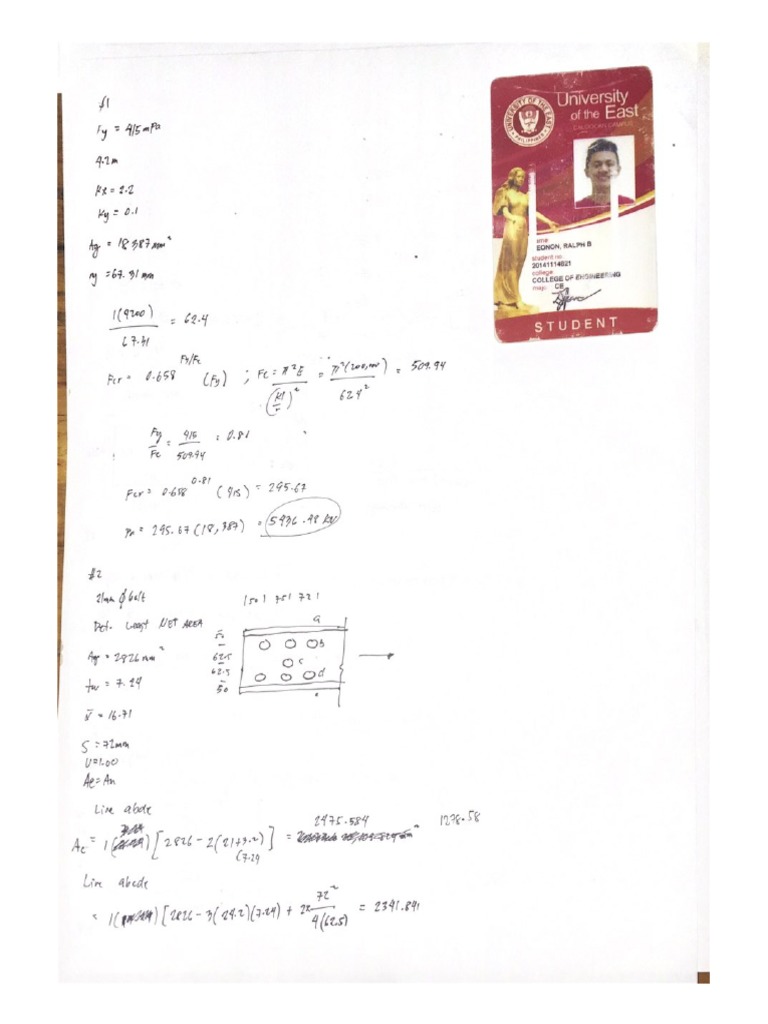 #1
Fy = 415 mPa
4.2m
Kx = 2.2
Ky = 0.1
Ag = 18387mm²
ry = 67.31mm
1(4200) / 67.31 = 62.4
Fcr = 0.658^Fy/Fe (Fy) ; Fe = π²E / (Kl/r)² = π²(200,000) / 62.4² = 509.94
Fy/Fe = 415/509.94 = 0.81
Fcr = 0.658^0.81 (415) = 295.67
Pn = 295.67(18,387) = 5436.48 KN
#2
21mm ϕ bolt
|50| 75| 72|
Det. Least NET AREA
Ag = 2826mm²
tw = 7.24
x̄ = 16.71
S = 72mm
U=1.00
Ae=An
50
62.5
62.5
50
a
b
c
d
Line abde
Ae = 1 [2826 - 2(21+3.2)] = 2475.584
(7.24
1278.58
Line abcde
= 1 [2826 - 3(24.2)(7.24) + 2x 72² / 4(62.5) = 2341.841
UNIVERSITY OF THE EAST
PHILIPPINES
University
of the East
CALOOCAN CAMPUS
EQNON, RALPH B
student no
20141114621
college
COLLEGE OF ENGINEERING
CE
STUDENT